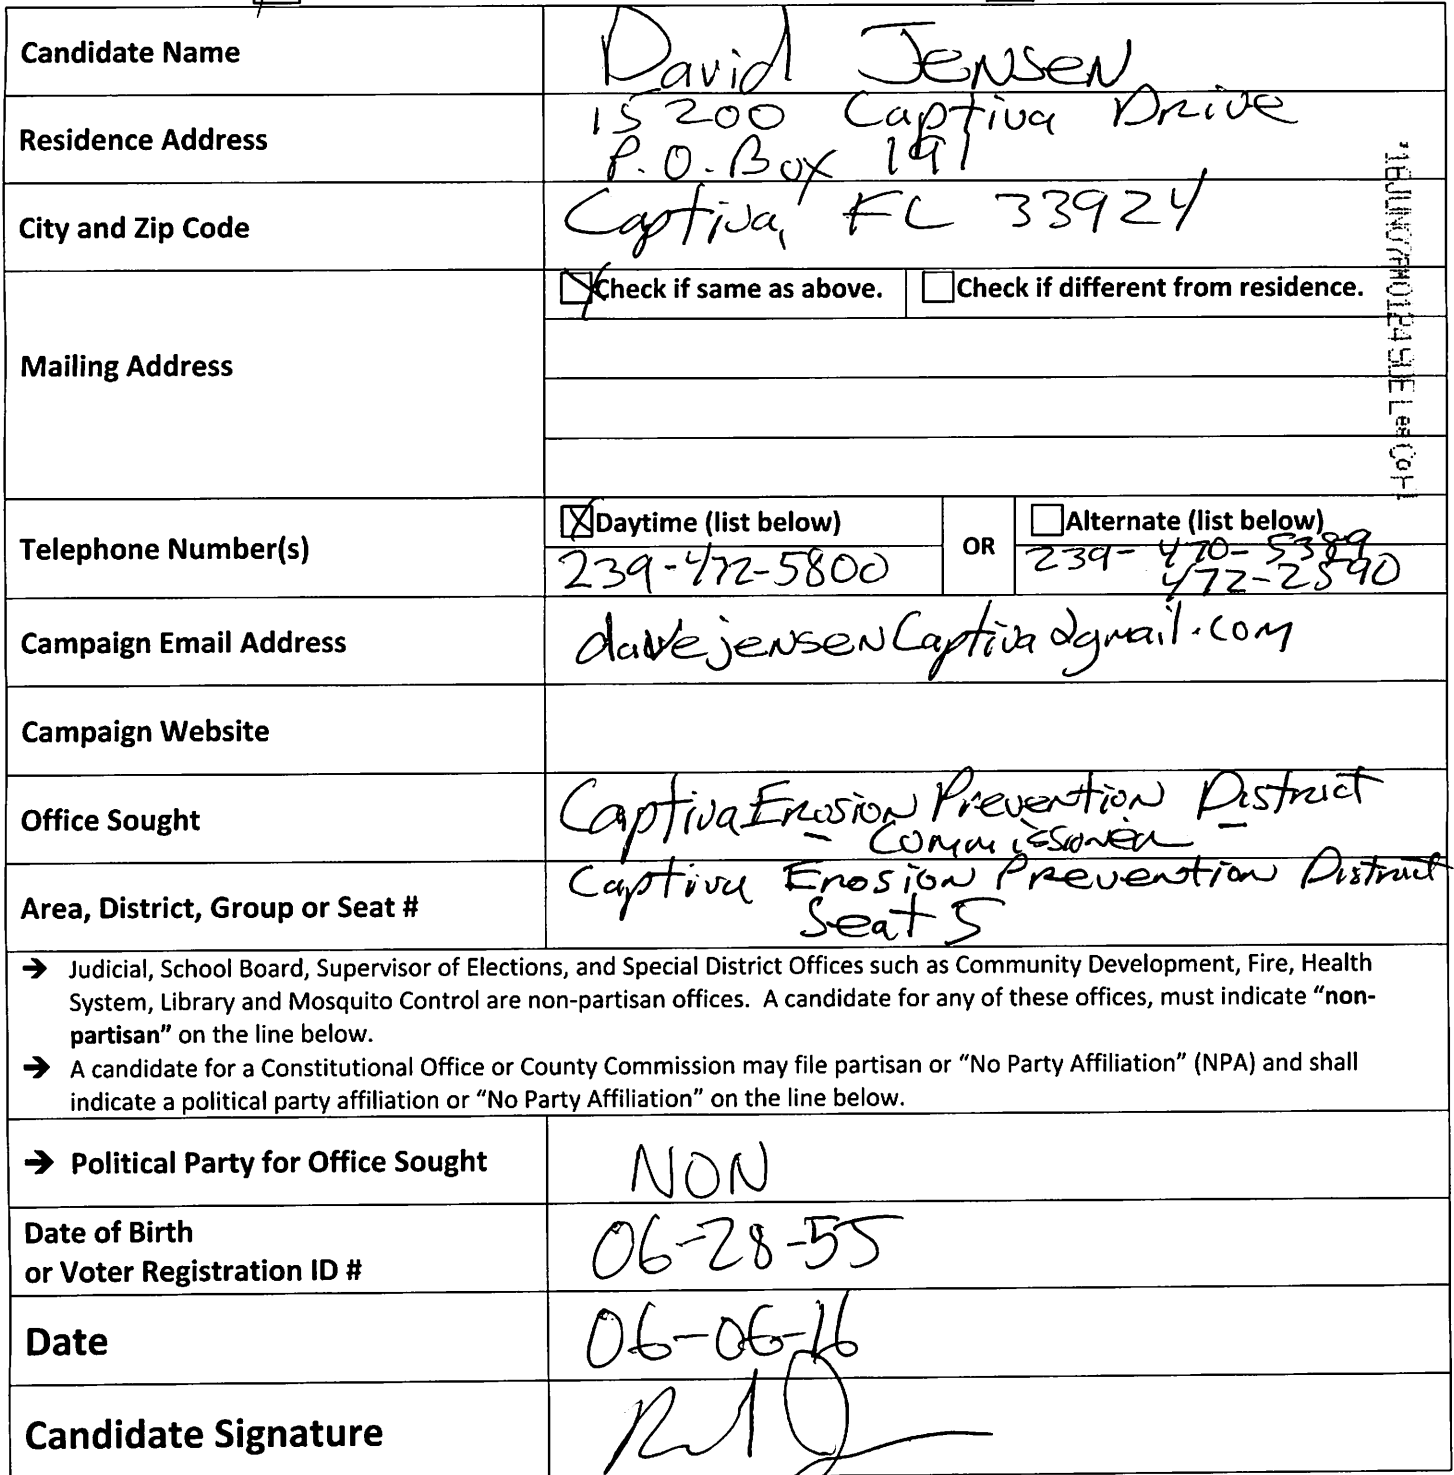 Candidate Name
David Jensen
Residence Address
15200 Captiva Drive
P.O. Box 191
City and Zip Code
Captiva, FL 33924
Mailing Address
Check if same as above.
Check if different from residence.
Telephone Number(s)
Daytime (list below)
239-472-5800
OR
Alternate (list below)
239-470-5389
472-2590
Campaign Email Address
davejensenCaptiva@gmail.com
Campaign Website
Office Sought
Captiva Erosion Prevention District
- Commissioner -
Area, District, Group or Seat #
Captiva Erosion Prevention District
Seat 5
→ Judicial, School Board, Supervisor of Elections, and Special District Offices such as Community Development, Fire, Health
System, Library and Mosquito Control are non-partisan offices. A candidate for any of these offices, must indicate "non-
partisan" on the line below.
→ A candidate for a Constitutional Office or County Commission may file partisan or "No Party Affiliation" (NPA) and shall
indicate a political party affiliation or "No Party Affiliation" on the line below.
→ Political Party for Office Sought
NON
Date of Birth
or Voter Registration ID #
06-28-55
Date
06-06-16
Candidate Signature